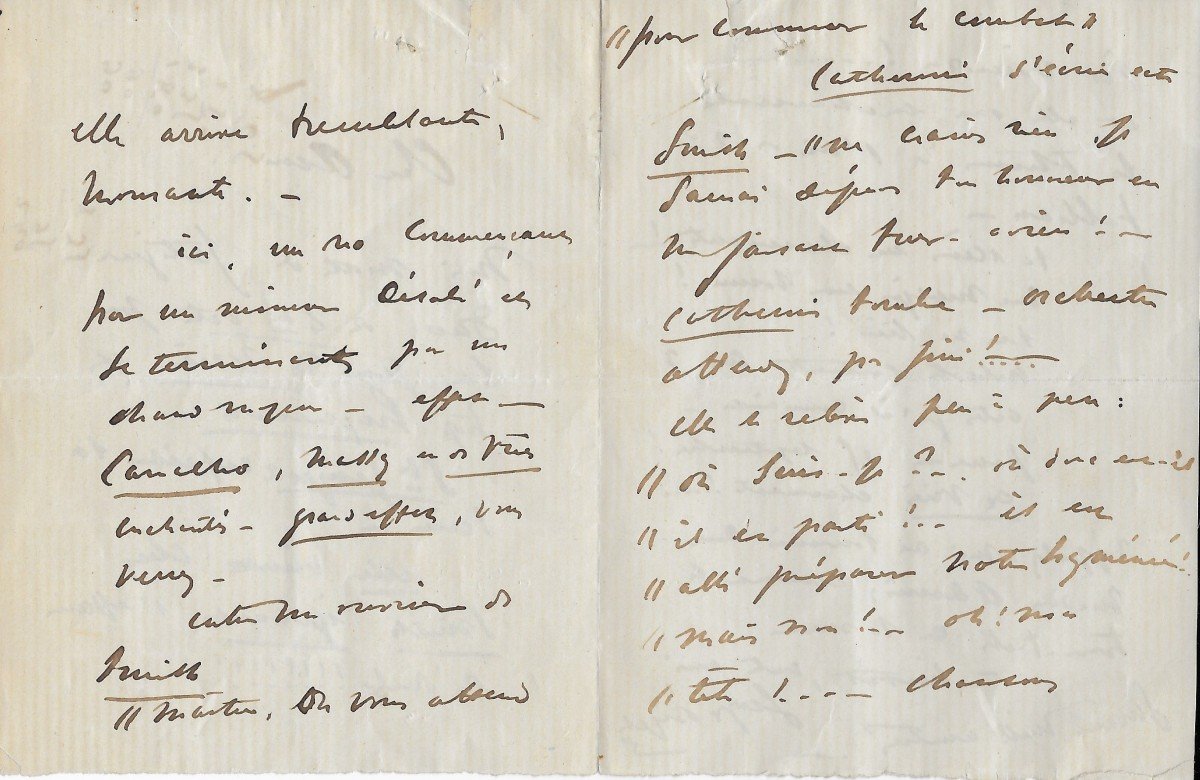 elle arrive tremblante,
mourante. –
ici, un no commençant
par un mineur désolé et
se terminant par un
chaud majeur – effet –
Carvalho, Massy et os très
enchantés – grand effet, vous
verrez –
entre un ouvrier de
Smith
"Maître, on vous attend
"pour commencer le combat"
Catherine s'écrie et
Smith – "ne crains rien je
saurai défendre ton honneur en
me faisant tuer – adieu! –
Catherine tombe – orchestre
attendez, pas fini!....
elle se relève peu à peu :
"où suis-je?.. où donc est-il
"il est parti!... il est
"allé préparer notre hyménée!
"mais non!... oh! ma
"tête!.... chassons